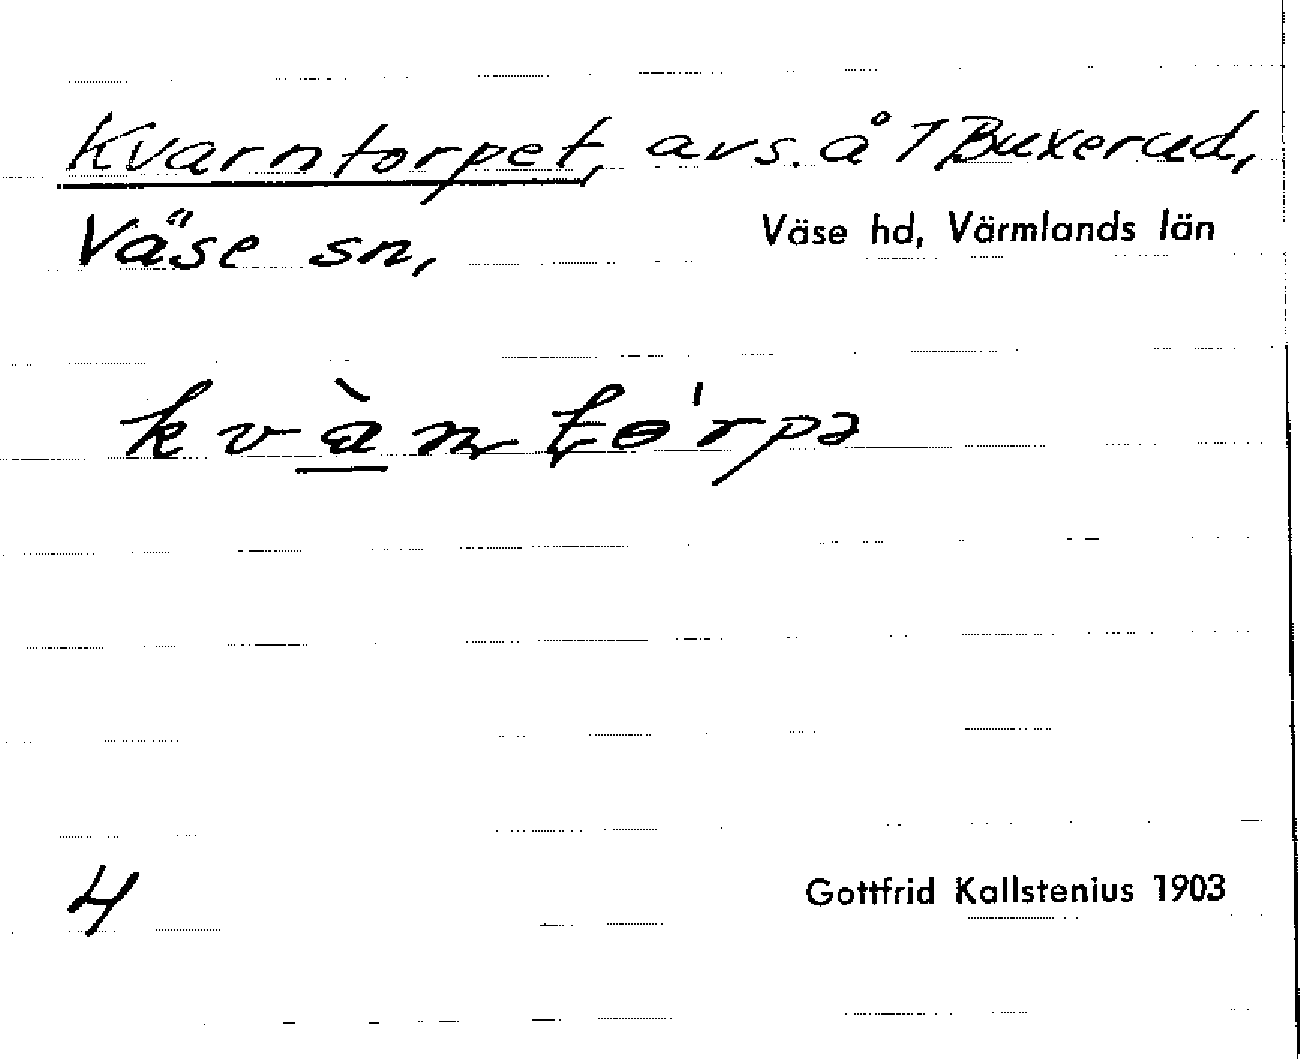 Kvarntorpet, avs. å 7 Buxerud,
Väse sn,
Väse hd, Värmlands län
kvàntɵ'rpə
4
Gottfrid Kallstenius 1903